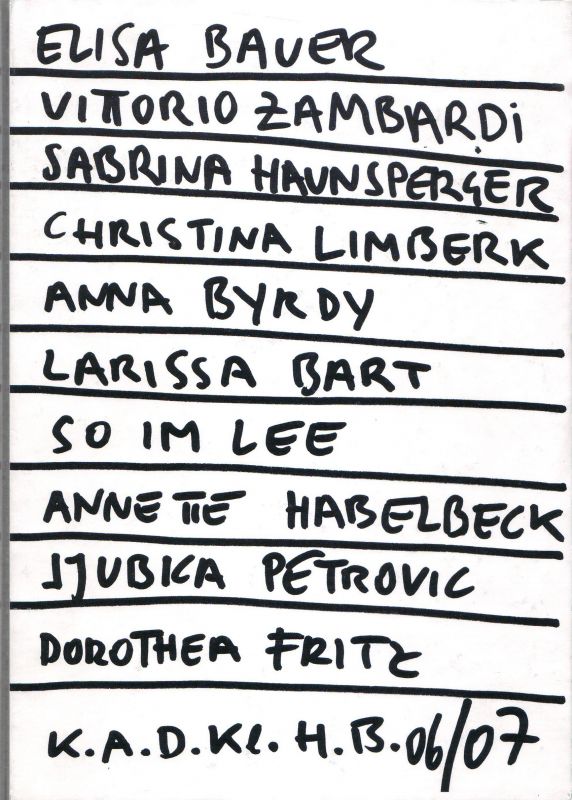 ELISA BAUER
VITTORIO ZAMBARDi
SABRINA HAUNSPERGER
CHRISTINA LIMBERK
ANNA BYRDY
LARISSA BART
SO IM LEE
ANNETTE HABELBECK
LJUBICA PETROVIC
DOROTHEA FRITZ
K.A.D.Kl.H.B.06/07